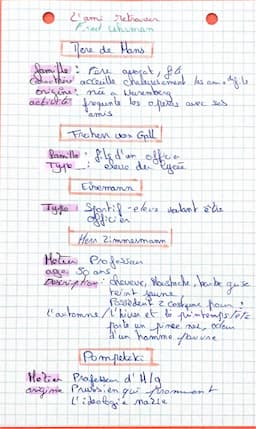 L'ami retrouvé
Fred Uhlman
Père de Hans
famille : Père avocat, fils
accueille chaleureusement les amis
origine : née a Nuremberg
activité frequente les opéras avec ses
amis
Freiherr von Gall
Famille : fils d'un officier
Type : eleve du lycée
Eisemann
Type : Sportif - eleve voulant être
officier
Herr Zimmermann
Metier Professeur
age 50 ans
Description : cheveux, Moustache, barbe grise
teint jaune
Possédent 2 costume pour :
L'automne / l'hiver et le printemps / été
porte un pince nez, odeur
d'un homme pauvre
Pompetzki
Metier Professeur d'H/g
origine Prussien qui
L'ideologie nazie